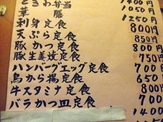 ときわ弁当
華膳 1400円
刺身定食 1250円
天ぷら定食 800円
豚かつ定食 850円
豚生姜炆定食 750円
ハンバーグエッグ定食 750円
鳥から揚定食 650円
牛スタミナ定食
バラかつ皿定食